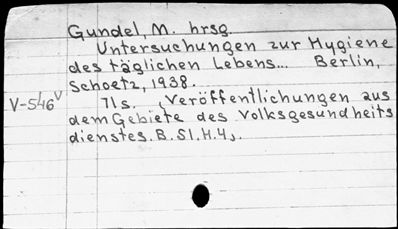 Gundel, M. hrsg.
Untersuchungen zur Hygiene
des täglichen Lebens... Berlin,
Schoetz, 1938.
V-546 V 71s. „Veröffentlichungen aus
dem Gebiete des Volksgesundheits
dienstes. B. 51, H. 4".